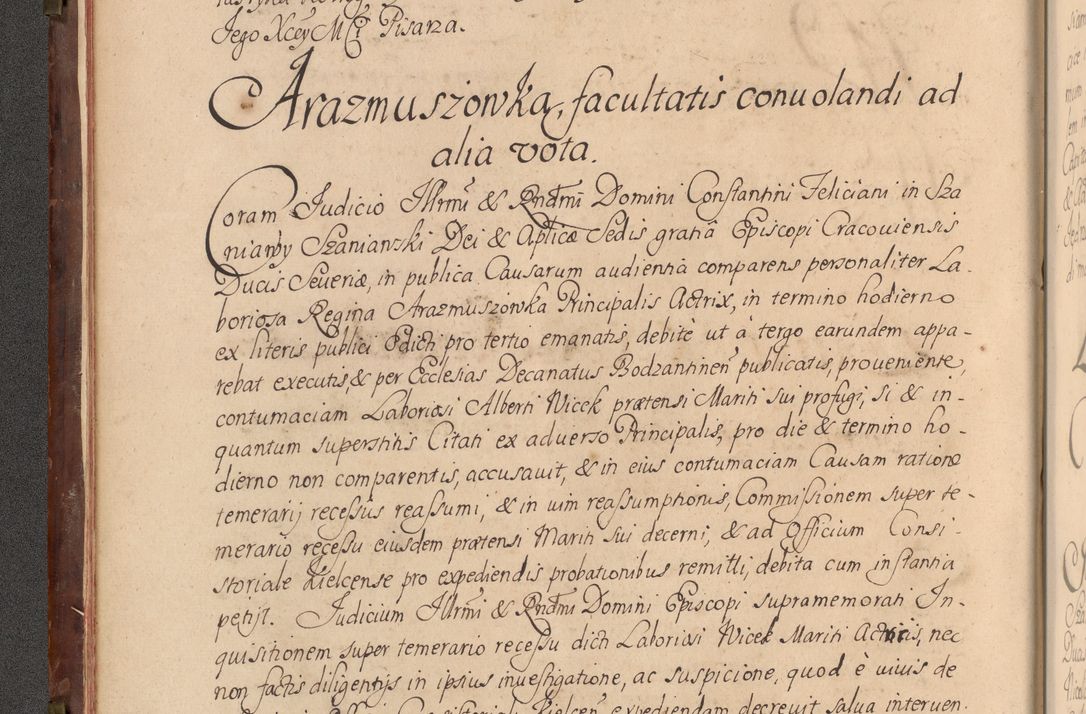 Jego Xcey Mci Pisarza.
Arazmuszowka, facultatis conuolandi ad
alia vota.
Coram Judicio Illrmi & Rndmi Domini Constantini Feliciani in Sza
niawy Szaniawski Dei & Aplicæ Sedis gratiâ Episcopi Cracoviensis
Ducis Severiæ, in publica Causarum audientia comparens personaliter La-
boriosa Regina Arazmuszowka Principalis Actrix, in termino hodierno
ex literis publici Edicti pro tertio emanatis, debitè ut à tergo earundem appa-
rebat executis, & per Ecclesias Decanatus Bodzantinen publicatis, proveniente,
contumaciam Laboriosi Alberti Wicek prætensi Mariti sui profugi, si & in-
quantum superstitis Citati ex adverso Principalis, pro die & termino ho-
dierno non comparentis, accusavit, & in eius contumaciam Causam ratione
temerarij recessus reassumi, & in vim reassumptionis, Commissionem super te-
merario recessu eiusdem prætensi Mariti sui decerni, & ad Officium Consi-
storiale Kielcense pro expediendis probationibus remitti, debita cum instantia
petijt. Judicium Illrmi & Rndmi Domini Episcopi supramemorati In-
quisitionem super temerario recessu dicti Laboriosi Wicek Mariti Actricis, nec
non factis diligentijs in ipsius investigatione, ac suspicione, quod è vivis de
expediendam decrevit salva interven.